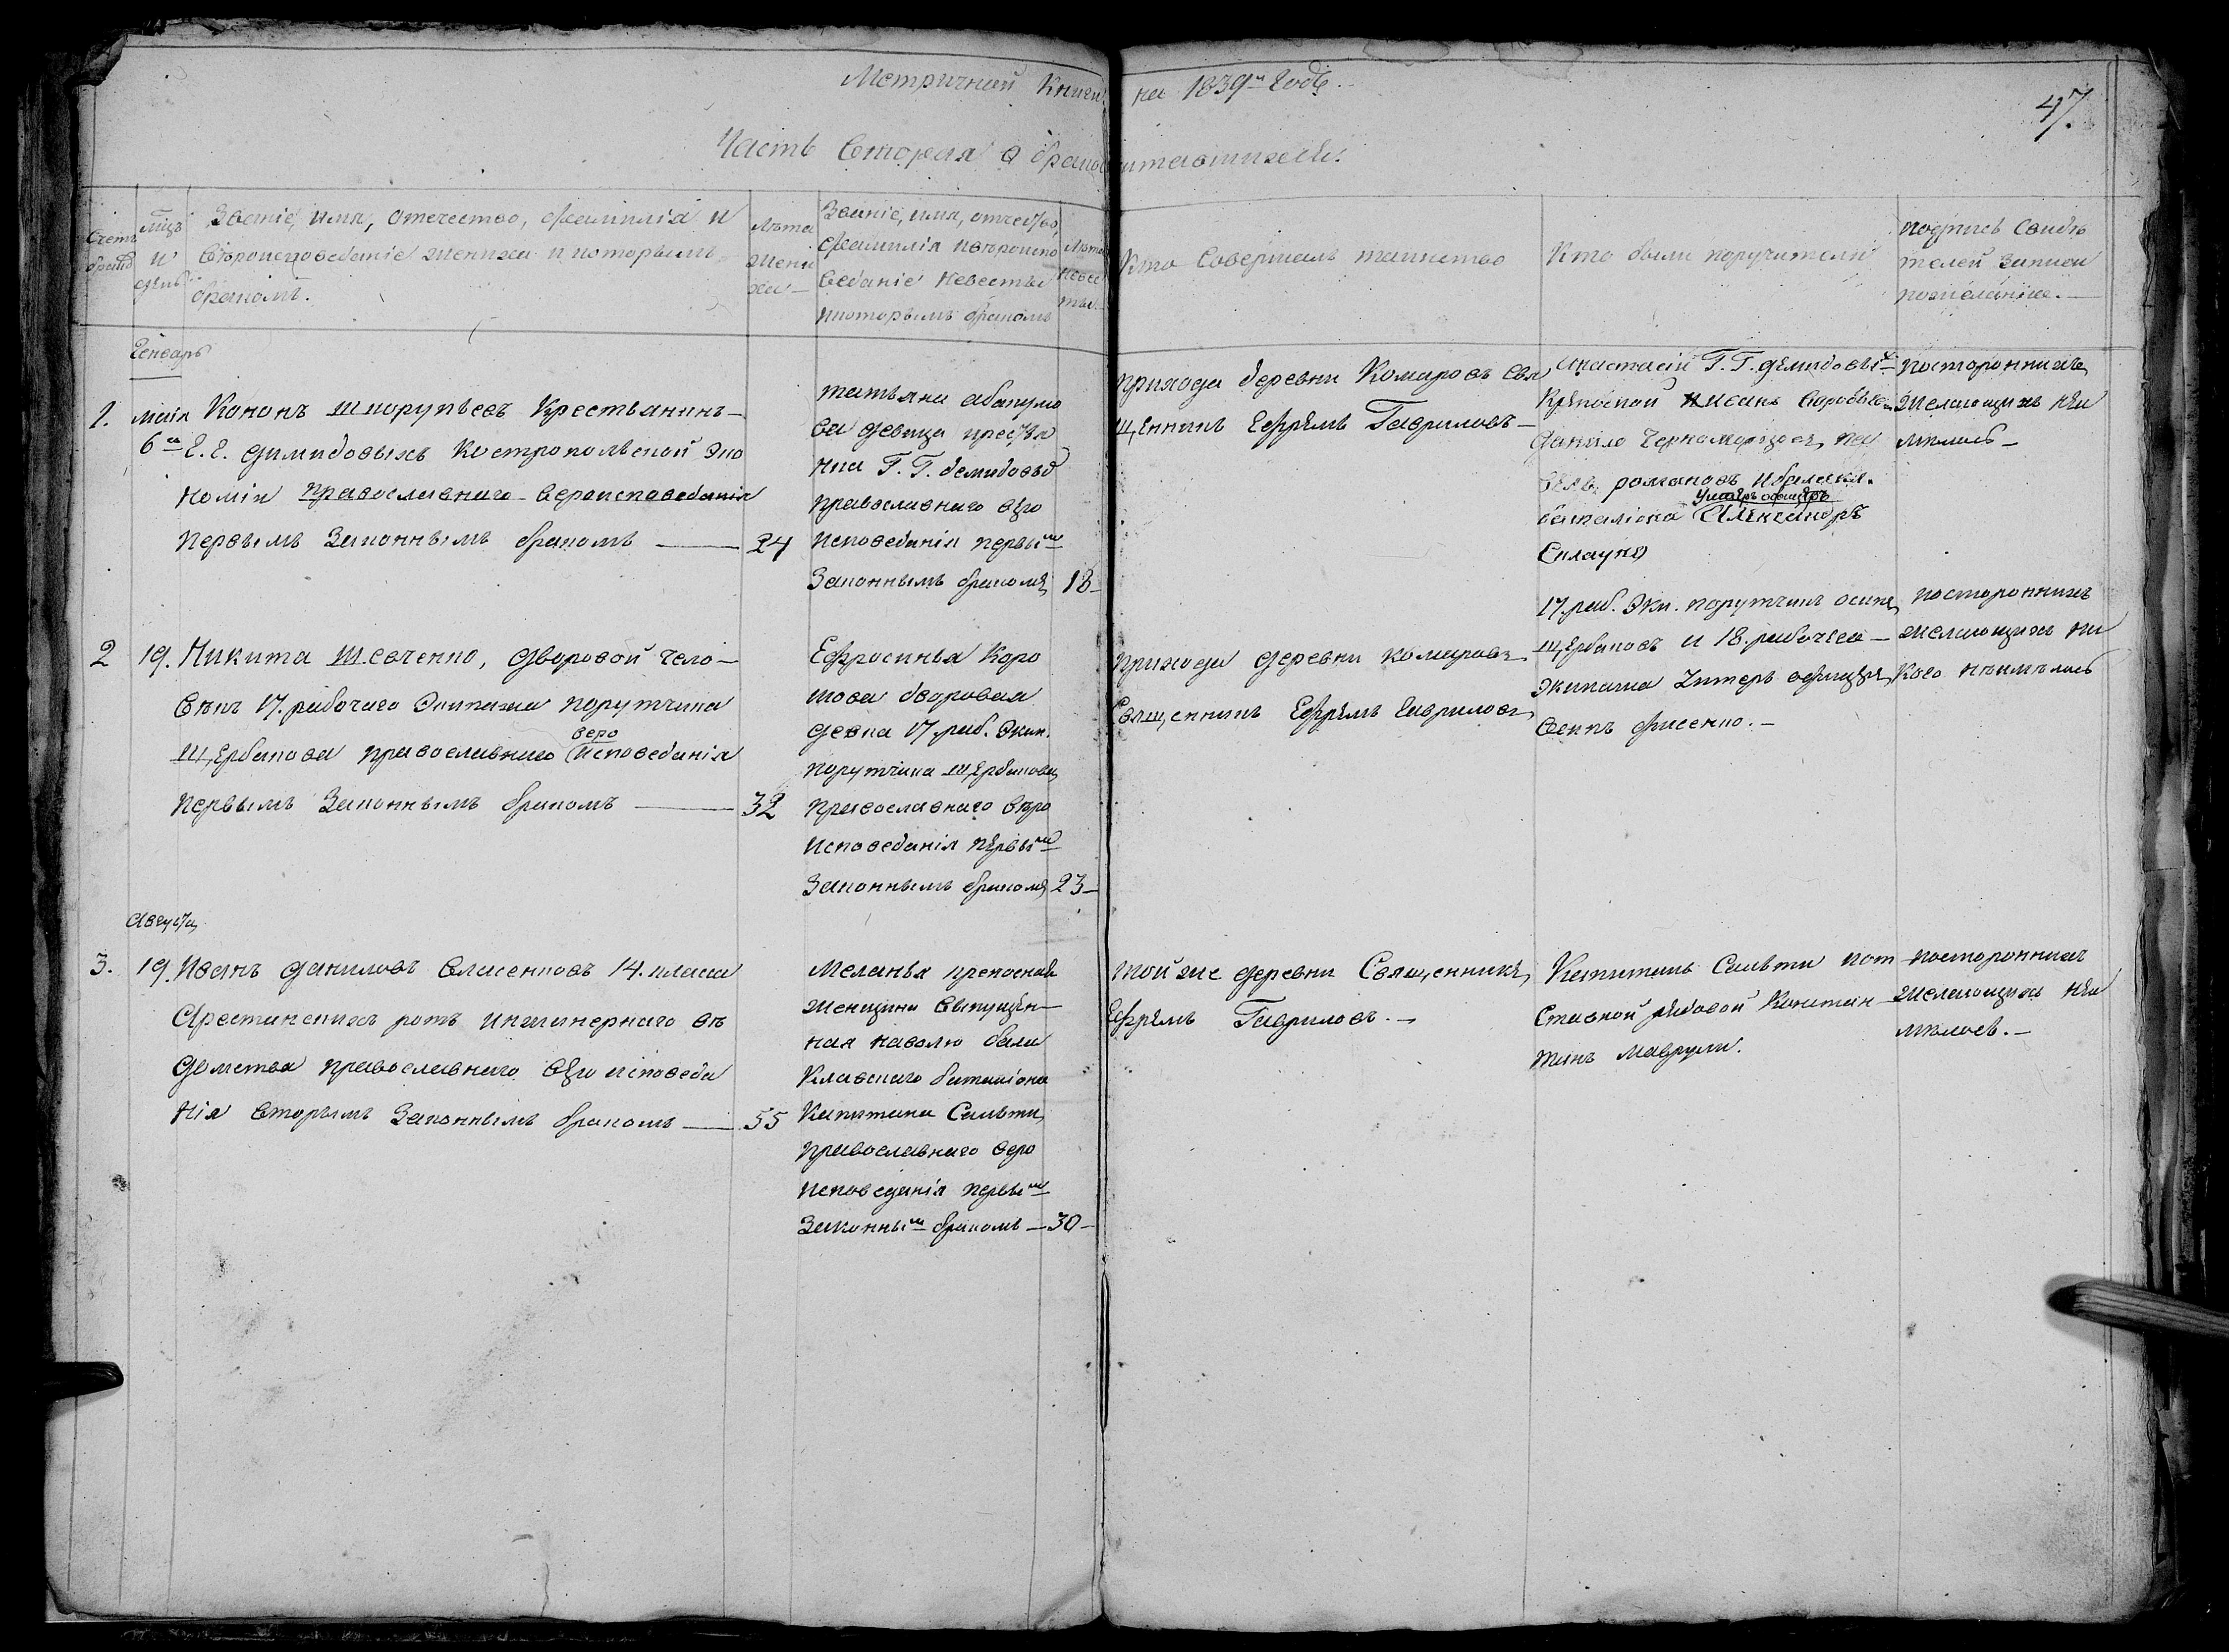 Метричной Книги на 1839м Годъ.
47.
Часть Вторая о бракосочитавшихся.
Счетъ браковъ
мѣцъ и день
Званіе, имя, отечество, фамилія и
вѣроисповеданіе жениха и которымъ
бракомъ.
Лѣта
жени
ха
Званіе, имя, отчество,
фамилія и вѣроиспо
веданіе невесты
и которымъ бракомъ
Лѣта
невес
ты
Кто Совершалъ таинство
Кто были поручители
подпись свидѣ
телей записи
по желанію.
Генварь
1.
маія
6а
Кононъ Шкорупѣевъ Крестьянинъ
Г. Г. Димидовыхъ Костропольской Эко
номіи православнаго вероисповеданія
первымъ законнымъ бракомъ
24
татьяна абакумо
ва девица крестья
нка Г. Г. демидовыхъ
православнаго веро
исповеданія первым
законнымъ бракомъ
18
прихода деревни Комаровъ Свя
щенникъ Ефремъ Гавриловъ
Г. Г. демидовы
Данило Черноморцовъ
романовъ
унтеръ офицеръ
баталіона Александръ
постороннихъ
желающихъ не
имелось
2
19.
Никита Шевченко, дворовой чело
векъ 17. рабочаго Экипажа порутчика
веро
Щербакова православнаго исповеданія
первымъ законнымъ бракомъ
32
Ефросинья Коро
това дворовая
девка 17 раб. Экип.
порутчика Щербакова
православнаго веро
исповеданія первым
законнымъ бракомъ
23
прихода деревни комаровъ
Священникъ Ефремъ Гавриловъ
17. раб. Эки. порутчикъ осипъ
Щербаковъ и 18. рабочаго
экипажа Унтеръ офицеръ
фисенко.
постороннихъ
желающихъ ни
кого неимелось
Августа
3.
19.
Иванъ Даниловъ Власенковъ 14. класса
Арестанскихъ ротъ инжинернаго вѣ
домства православнаго веро исповеда
нія вторымъ законнымъ бракомъ
55
Меланья крепосная
женщина выпущен
ная наволю бала
клавскаго баталіона
Капитана Сальти
православнаго веро
исповеданія первым
законным бракомъ
30
той же деревни Священникъ
Ефремъ Гавриловъ.
Капитанъ Сальти и от
ставной рядовой Констан
тинъ Маврули.
постороннихъ
желающихъ не
имелось.